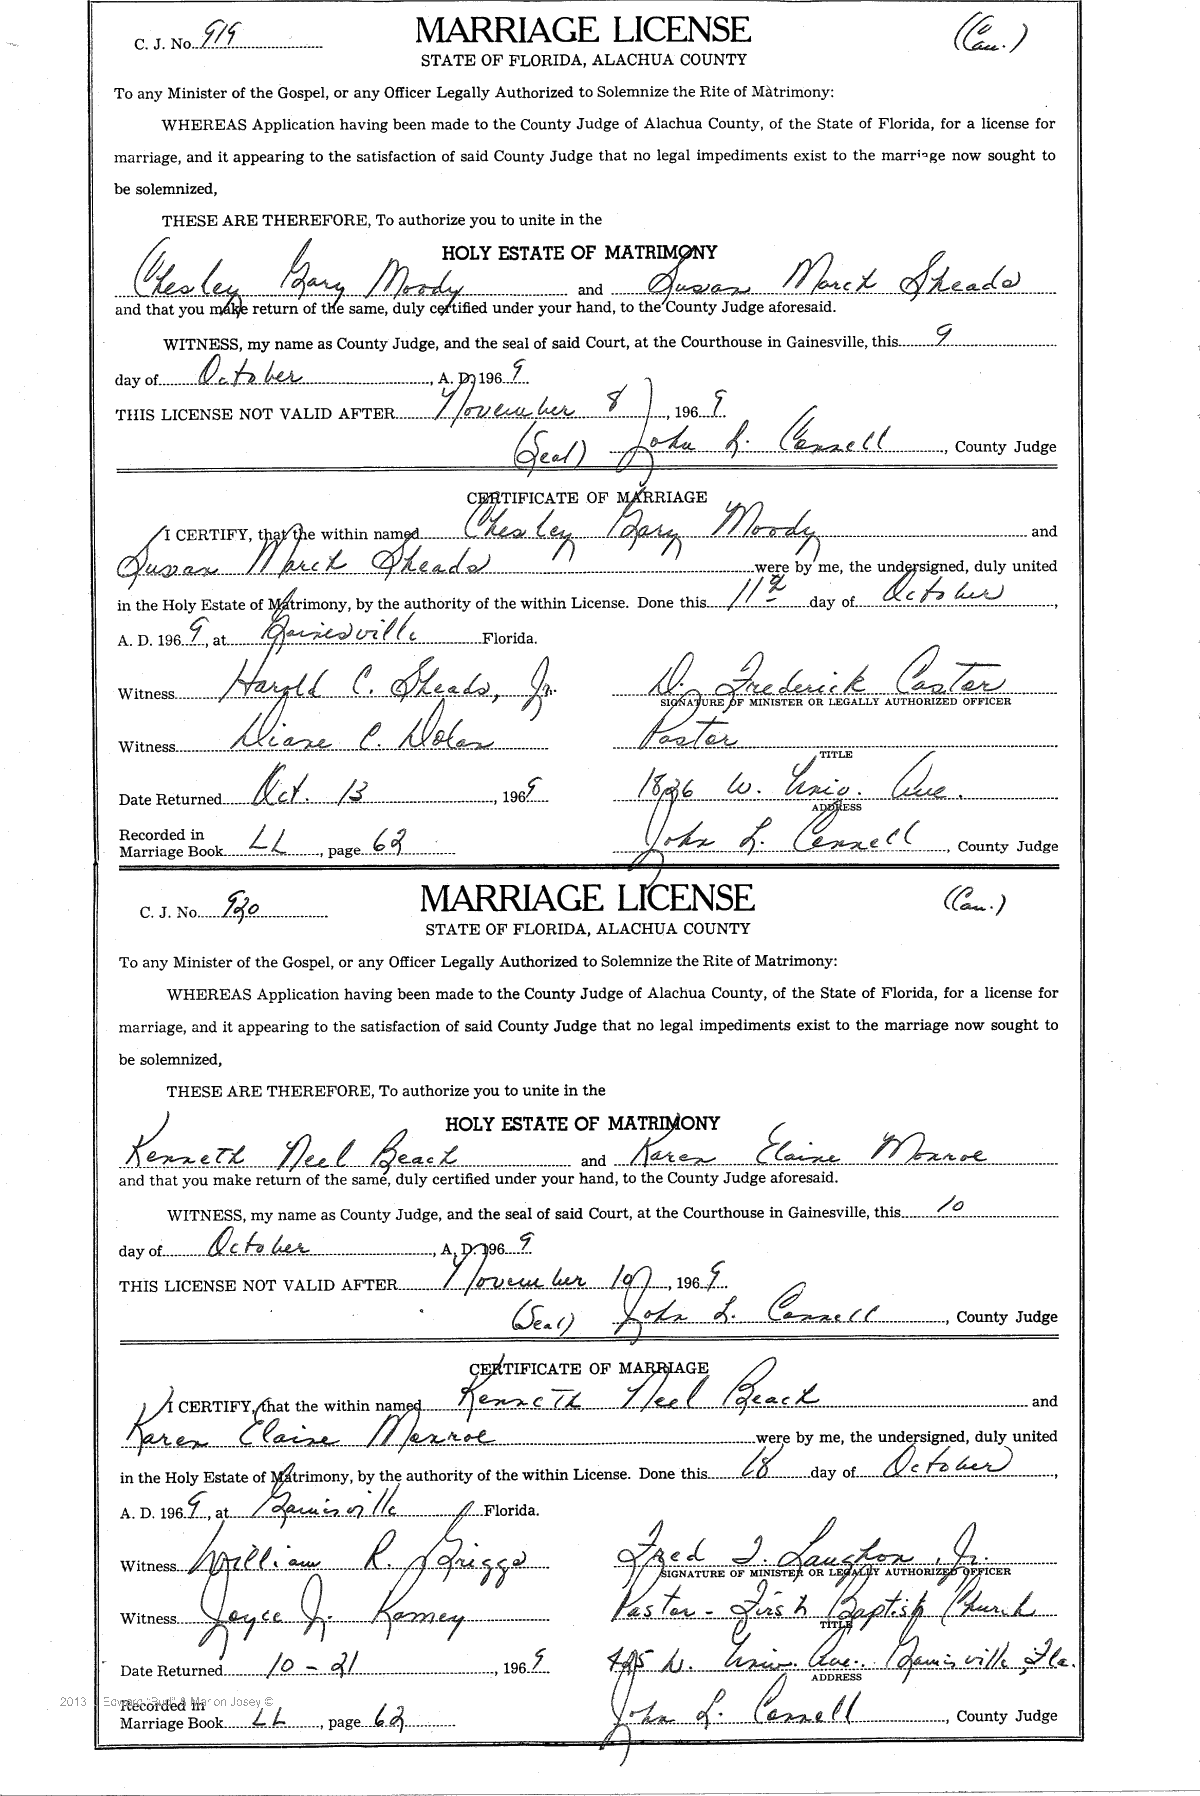 C. J. No. 919
MARRIAGE LICENSE
(Cau.)
STATE OF FLORIDA, ALACHUA COUNTY
To any Minister of the Gospel, or any Officer Legally Authorized to Solemnize the Rite of Matrimony:
WHEREAS Application having been made to the County Judge of Alachua County, of the State of Florida, for a license for
marriage, and it appearing to the satisfaction of said County Judge that no legal impediments exist to the marriage now sought to
be solemnized,
THESE ARE THEREFORE, To authorize you to unite in the
HOLY ESTATE OF MATRIMONY
Chesley Gary Moody and Susan March Sheads
and that you make return of the same, duly certified under your hand, to the County Judge aforesaid.
WITNESS, my name as County Judge, and the seal of said Court, at the Courthouse in Gainesville, this 9
day of October, A. D. 196 9
THIS LICENSE NOT VALID AFTER November 8, 196 9
(Seal) John L. Connell, County Judge
CERTIFICATE OF MARRIAGE
I CERTIFY, that the within named Chesley Gary Moody and
Susan March Sheads were by me, the undersigned, duly united
in the Holy Estate of Matrimony, by the authority of the within License. Done this 11th day of October,
A. D. 196 9, at Gainesville Florida.
Witness Harold C. Sheads, Jr. D. Frederick Castor
SIGNATURE OF MINISTER OR LEGALLY AUTHORIZED OFFICER
Witness Diane C. Dolan Pastor
TITLE
Date Returned Oct. 13, 1969 1826 W. Univ. Ave.
ADDRESS
Recorded in
Marriage Book LL, page 62 John L. Connell, County Judge
C. J. No. 920
MARRIAGE LICENSE
(Cau.)
STATE OF FLORIDA, ALACHUA COUNTY
To any Minister of the Gospel, or any Officer Legally Authorized to Solemnize the Rite of Matrimony:
WHEREAS Application having been made to the County Judge of Alachua County, of the State of Florida, for a license for
marriage, and it appearing to the satisfaction of said County Judge that no legal impediments exist to the marriage now sought to
be solemnized,
THESE ARE THEREFORE, To authorize you to unite in the
HOLY ESTATE OF MATRIMONY
Kenneth Neel Beach and Karen Elaine Monroe
and that you make return of the same, duly certified under your hand, to the County Judge aforesaid.
WITNESS, my name as County Judge, and the seal of said Court, at the Courthouse in Gainesville, this 10
day of October, A. D. 196 9
THIS LICENSE NOT VALID AFTER November 10, 196 9
(Seal) John L. Connell, County Judge
CERTIFICATE OF MARRIAGE
I CERTIFY, that the within named Kenneth Neel Beach and
Karen Elaine Monroe were by me, the undersigned, duly united
in the Holy Estate of Matrimony, by the authority of the within License. Done this 18 day of October,
A. D. 196 9, at Gainesville Florida.
Witness William R. Griggs Fred T. Laughon, Jr.
SIGNATURE OF MINISTER OR LEGALLY AUTHORIZED OFFICER
Witness Joyce J. Ramey Pastor - First Baptist Church
TITLE
Date Returned 10-21, 196 9 425 W. Univ. Ave. Gainesville, Fla.
ADDRESS
2013 Edward "Bud" & Marion Josey ©
Recorded in
Marriage Book LL, page 62 John L. Connell, County Judge